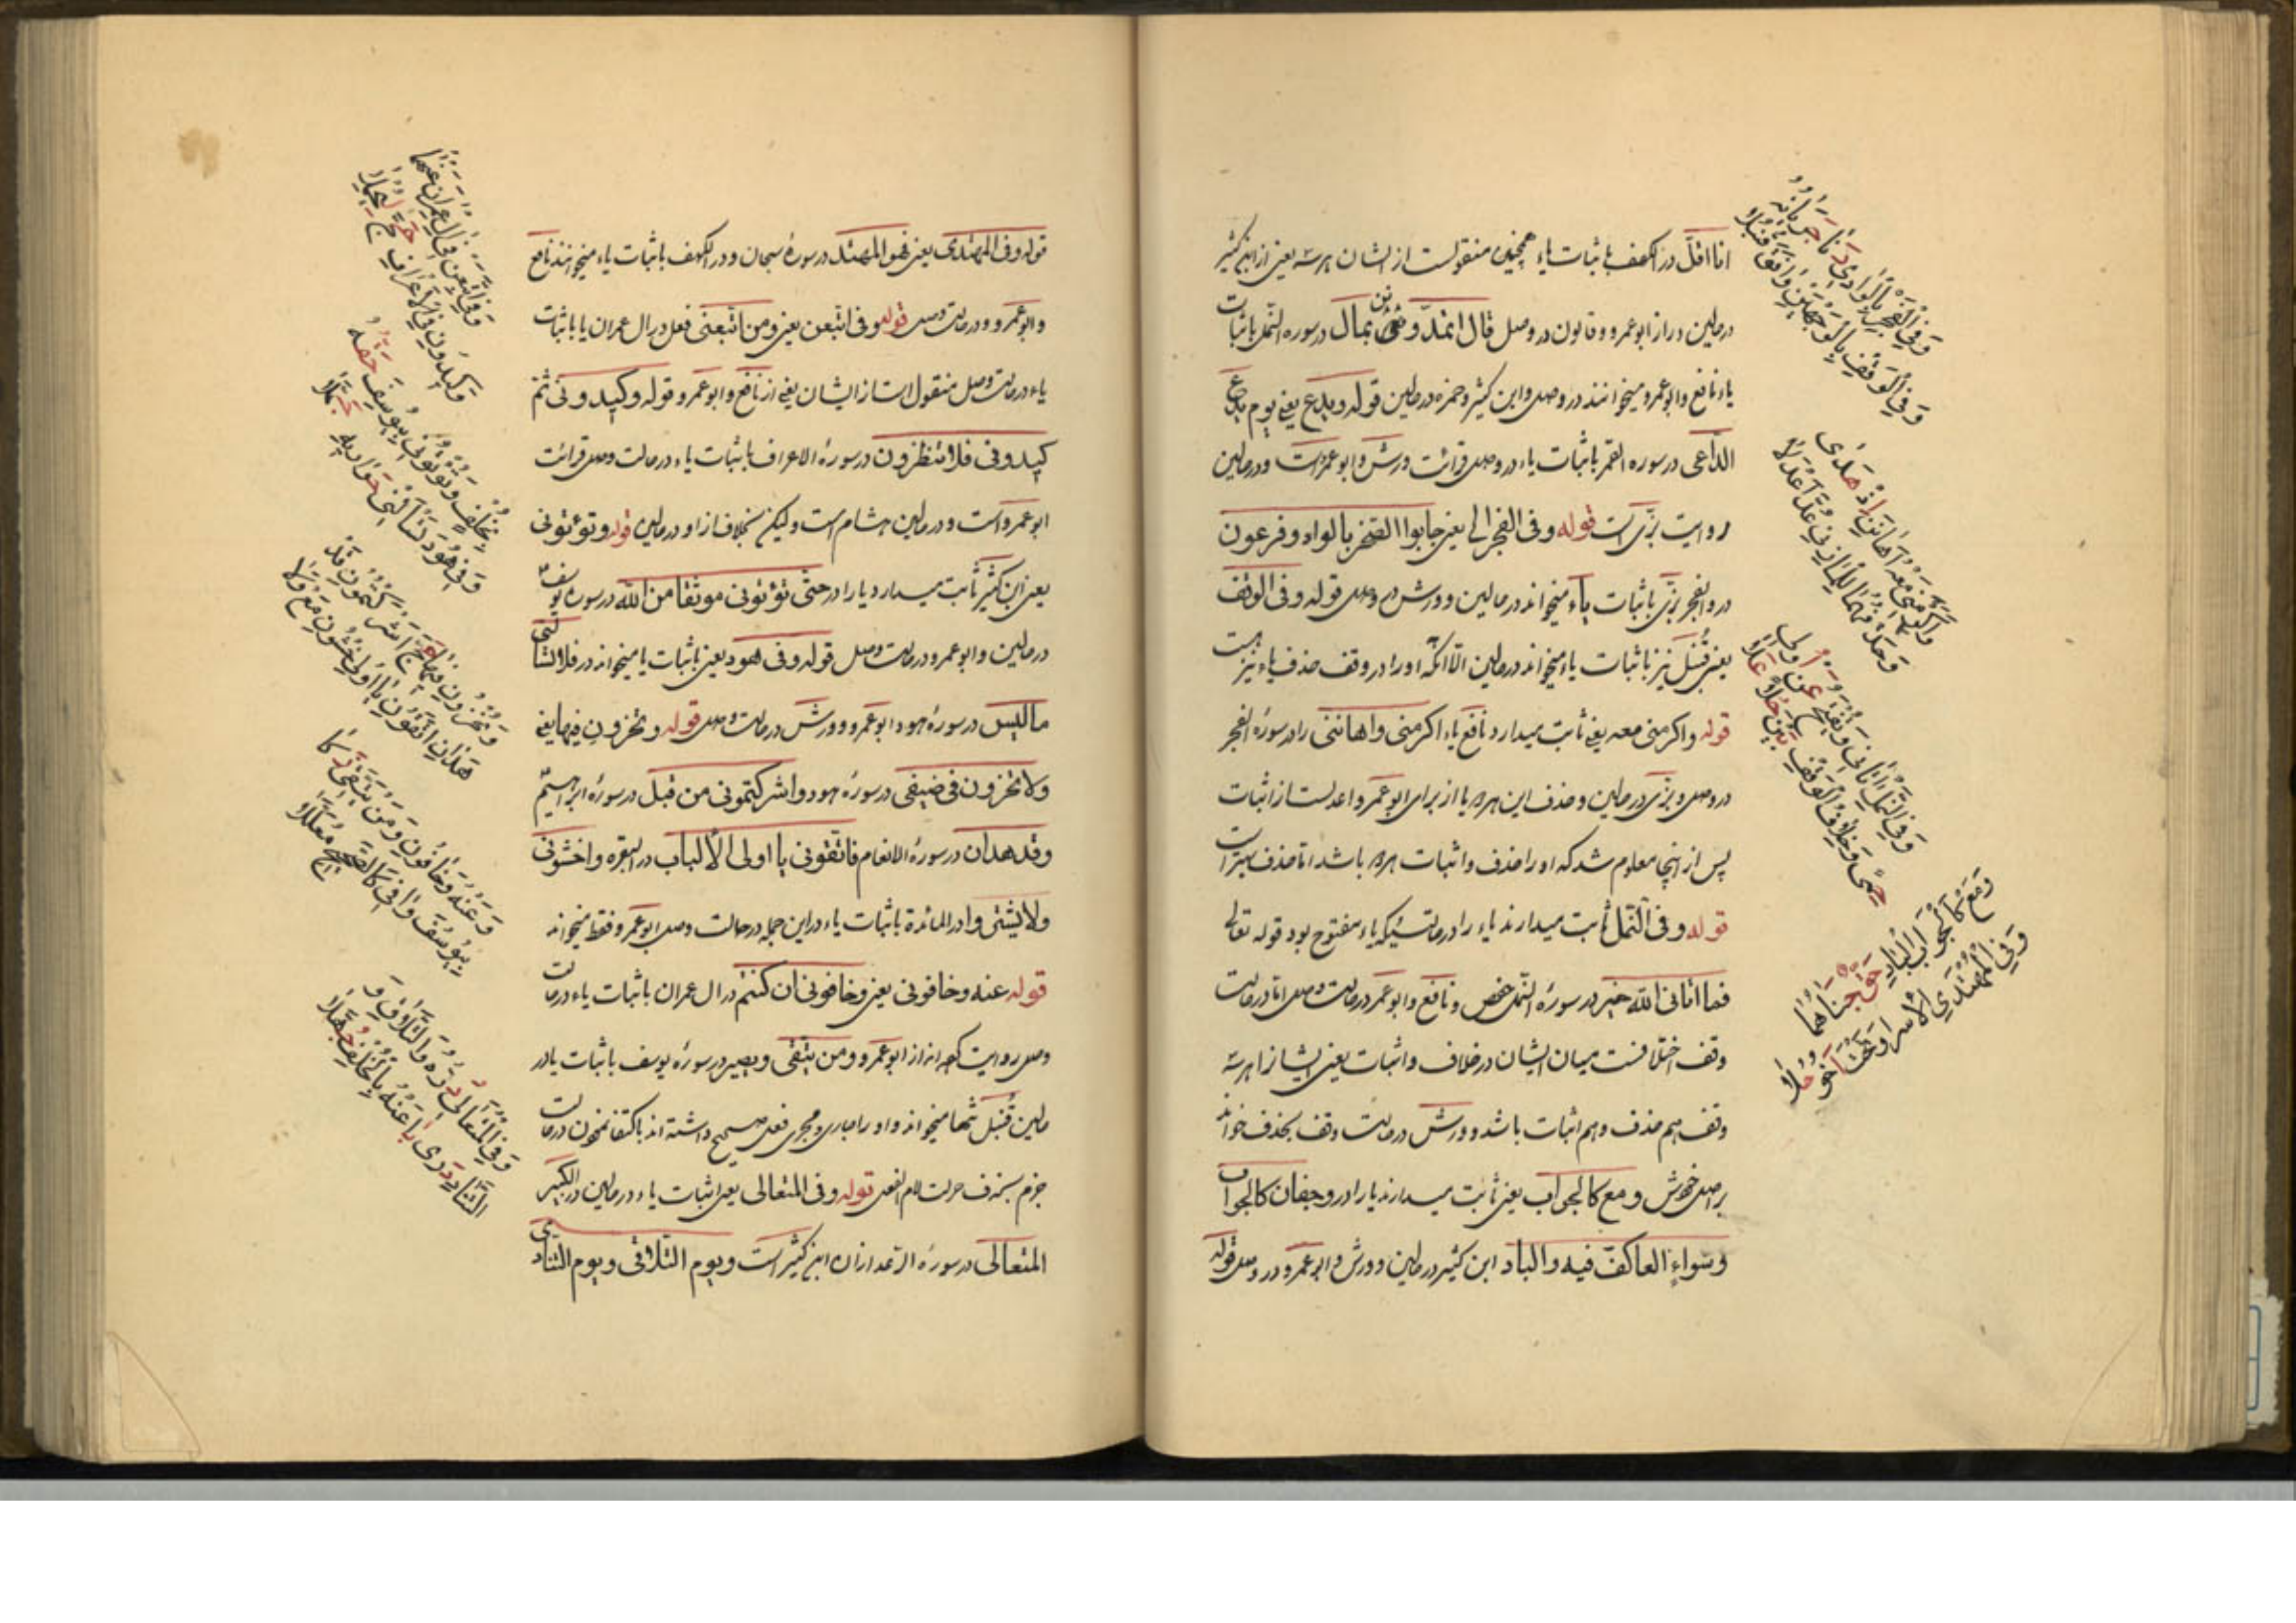 انا اقلّ در الکهف باثبات یاء همچنین منقولست از ایشان هر سه یعنی از ابن کثیر
در حالین و از ابوعمرو و قالون در وصل قال اتمدّونن بمال در سوره النّمل باثبات
یاء نافع و ابوعمرو میخوانند در وصل و ابن کثیر و حمزه در حالین قوله ویدع یعنی یوم یدع
الدّاعی در سوره القمر باثبات یاء در وصل قرائت ورش و ابوعمرو است و در حالین
روایت بزّی است قوله وفی الفجر الی یعنی جابوا الصّخر بالواد وفرعون
در والفجر بزّی باثبات یاء میخواند در حالین و ورش در وصل قوله وفی الوقف
یعنی قنبل نیز باثبات یاء میخواند در حالین الّا انکه او را در وقف حذف یاء نیز هست
قوله واکرمنی معه یعنی ثابت میدارد نافع یاء اکرمنی و اهاننی را در سورهٔ الفجر
در وصل و بزّی در حالین و حذف این هر دو یا از برای ابوعمرو اعدلست از اثبات
پس از اینجا معلوم شد که او را حذف و اثبات هر دو باشد امّا حذف بهتر است
قوله وفی النّمل ثابت میدارند یاء را در حالتیکه یاء مفتوح بود قوله تعالی
فما اتانی الله خیر در سورهٔ النّمل حفص و نافع و ابوعمرو در حالت وصل امّا در حالت
وقف اختلافست میان ایشان در خلاف و اثبات یعنی ایشانرا هر سه
وقف هم حذف و هم اثبات باشد و ورش در حالت وقف بحذف خواند
بر اصل خویش و مع کالجواب یعنی ثابت میدارند یا را در وجفان کالجواب
وسواء العاکف فیه والباد ابن کثیر در حالین و ورش و ابوعمرو در وصل قوله
وَفِی الْفَجْرِ بِالْوَادِی دَنَا جَرَیَانُهُ
وَفِی الْوَقْفِ بِالْوَجْهَیْنِ وَافَقَ قُنْبُلَا
وَاَکْرَمَنِی مَعْهُ اَهَانَنِ اِذْ هَدَی
وَحَذْفُهُمَا لِلْمَازِنِی عُدَّ اَعْدَلَا
وَفِی النَّمْلِ اٰتَانِی وَیُفْتَحُ عَنْ اُولِی
حِمًی وَخِلَافُ الْوَقْفِ بَیْنَ حُلًا عَلَا
وَمَعْ کَالْجَوَابِ الْبَادِ حَقٌّ جَنَاهُمَا
وَفِی الْمُهْتَدِی الْاِسْرَا وَتَحْتُ اَخُو حُلَا
قوله وفی المهتدی یعنی فهو المهتد در سورهٔ سبحان و در الکهف باثبات یاء میخوانند نافع
و ابوعمرو و در حالت وصل قوله وفی اتبعن یعنی ومن اتبعنی فعل در ال عمران یا باثبات
یاء در حالت وصل منقول است از ایشان یعنی از نافع و ابوعمرو قوله وکیدونی ثم
کیدونی فلا تنظرون در سورهٔ الاعراف باثبات یاء در حالت وصل قرائت
ابوعمرو است و در حالین هشام است ولیکن بخلاف از او در حالین قوله وتؤتونی
یعنی ابن کثیر ثابت میدارد یا را در حتّی تؤتونی موثقا من الله در سوره یوسف
در حالین و ابوعمرو در حالت وصل قوله وفی هود یعنی باثبات یا میخواند در فلا تسألنی
ما لیس در سورهٔ هود ابوعمرو و ورش در حالت وصل قوله وتخزون فیها یعنی
ولا تخزون فی ضیفی در سورهٔ هود و اشرکتمونی من قبل در سورهٔ ابراهیم
وقد هدان در سورهٔ الانعام فاتقونی یا اولی الألباب در البقره و اخشونی
ولا یشتی وا در المائدة باثبات یاء در این جمله در حالت وصل ابوعمرو فقط میخواند
قوله عنه وخافونی یعنی وخافونی ان کنتم در ال عمران باثبات یاء در حالت
وصل روایت کرده اند از ابوعمرو و من یتقی ویصبر در سورهٔ یوسف باثبات یا در
حالین قنبل تنها میخواند و او را جاری مجری فعل صحیح داشته اند باکتفا نمودن در حالت
جزم بحذف حرکت لام الفعل قوله وفی المتعالی یعنی اثبات یاء در حالین در الکبیر
المتعالی در سورهٔ الرّعد از ان ابن کثیر است و یوم التلاقی و یوم التنادی
وَفِی اتَّبَعَنْ فِی اٰلِ عِمْرَانَ عَنْهُمَا
وَکِیدُونِ فِی الْاَعْرَافِ حَجَّ لِیُحْمَلَا
بِخُلْفٍ وَتُؤْتُونِی بِیُوسُفَ حَقُّهُ
وَفِی هُودَ تَسْأَلْنِی حَوَارِیهِ جَمَّلَا
وَتُخْزُونِ فِیهَا حَجَّ اَشْرَکْتُمُونِ قَدْ
هَدَانِ اتَّقُونِ یَا اُولِی اخْشَوْنِ مَعْ وَلَا
وَعَنْهُ وَخَافُونِ وَمَنْ یَتَّقِی زَکَا
بِیُوسُفَ وَافَی کَالصَّحِیحِ مُعَلَّلَا
وَفِی الْمُتَعَالِی دُرُّهُ وَالتَّلَاقِ وَ
التَّنَادِ دَرَی بَاغِیهِ بِالْخُلْفِ جُهَّلَا